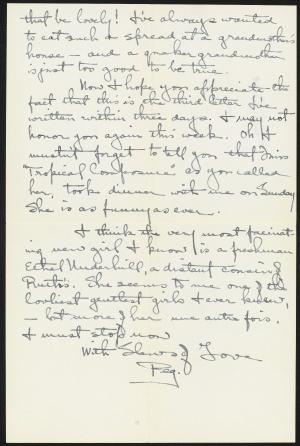 that be lovely! I've always wanted
to eat such a spread at a grandmother's
house — and a quaker grandmother
is just too good to be true.
Now I hope you appreciate the
fact that this is the third letter I've
written within three days. I may not
honor you again this week. Oh I
mustn't forget to tell you that Miss
"Tropical " as you called
her, took dinner with me on Sunday
She is as funny as ever.
I think the very most facinat-
ing new girl I know is a freshman
Ethel Underhill, a distant cousin of
Ruth's. She seems to me one of the
lovliest gentlest girls I ever knew,
— but more of her une autre fois.
I must stop now
With Slews of Love
Peg.